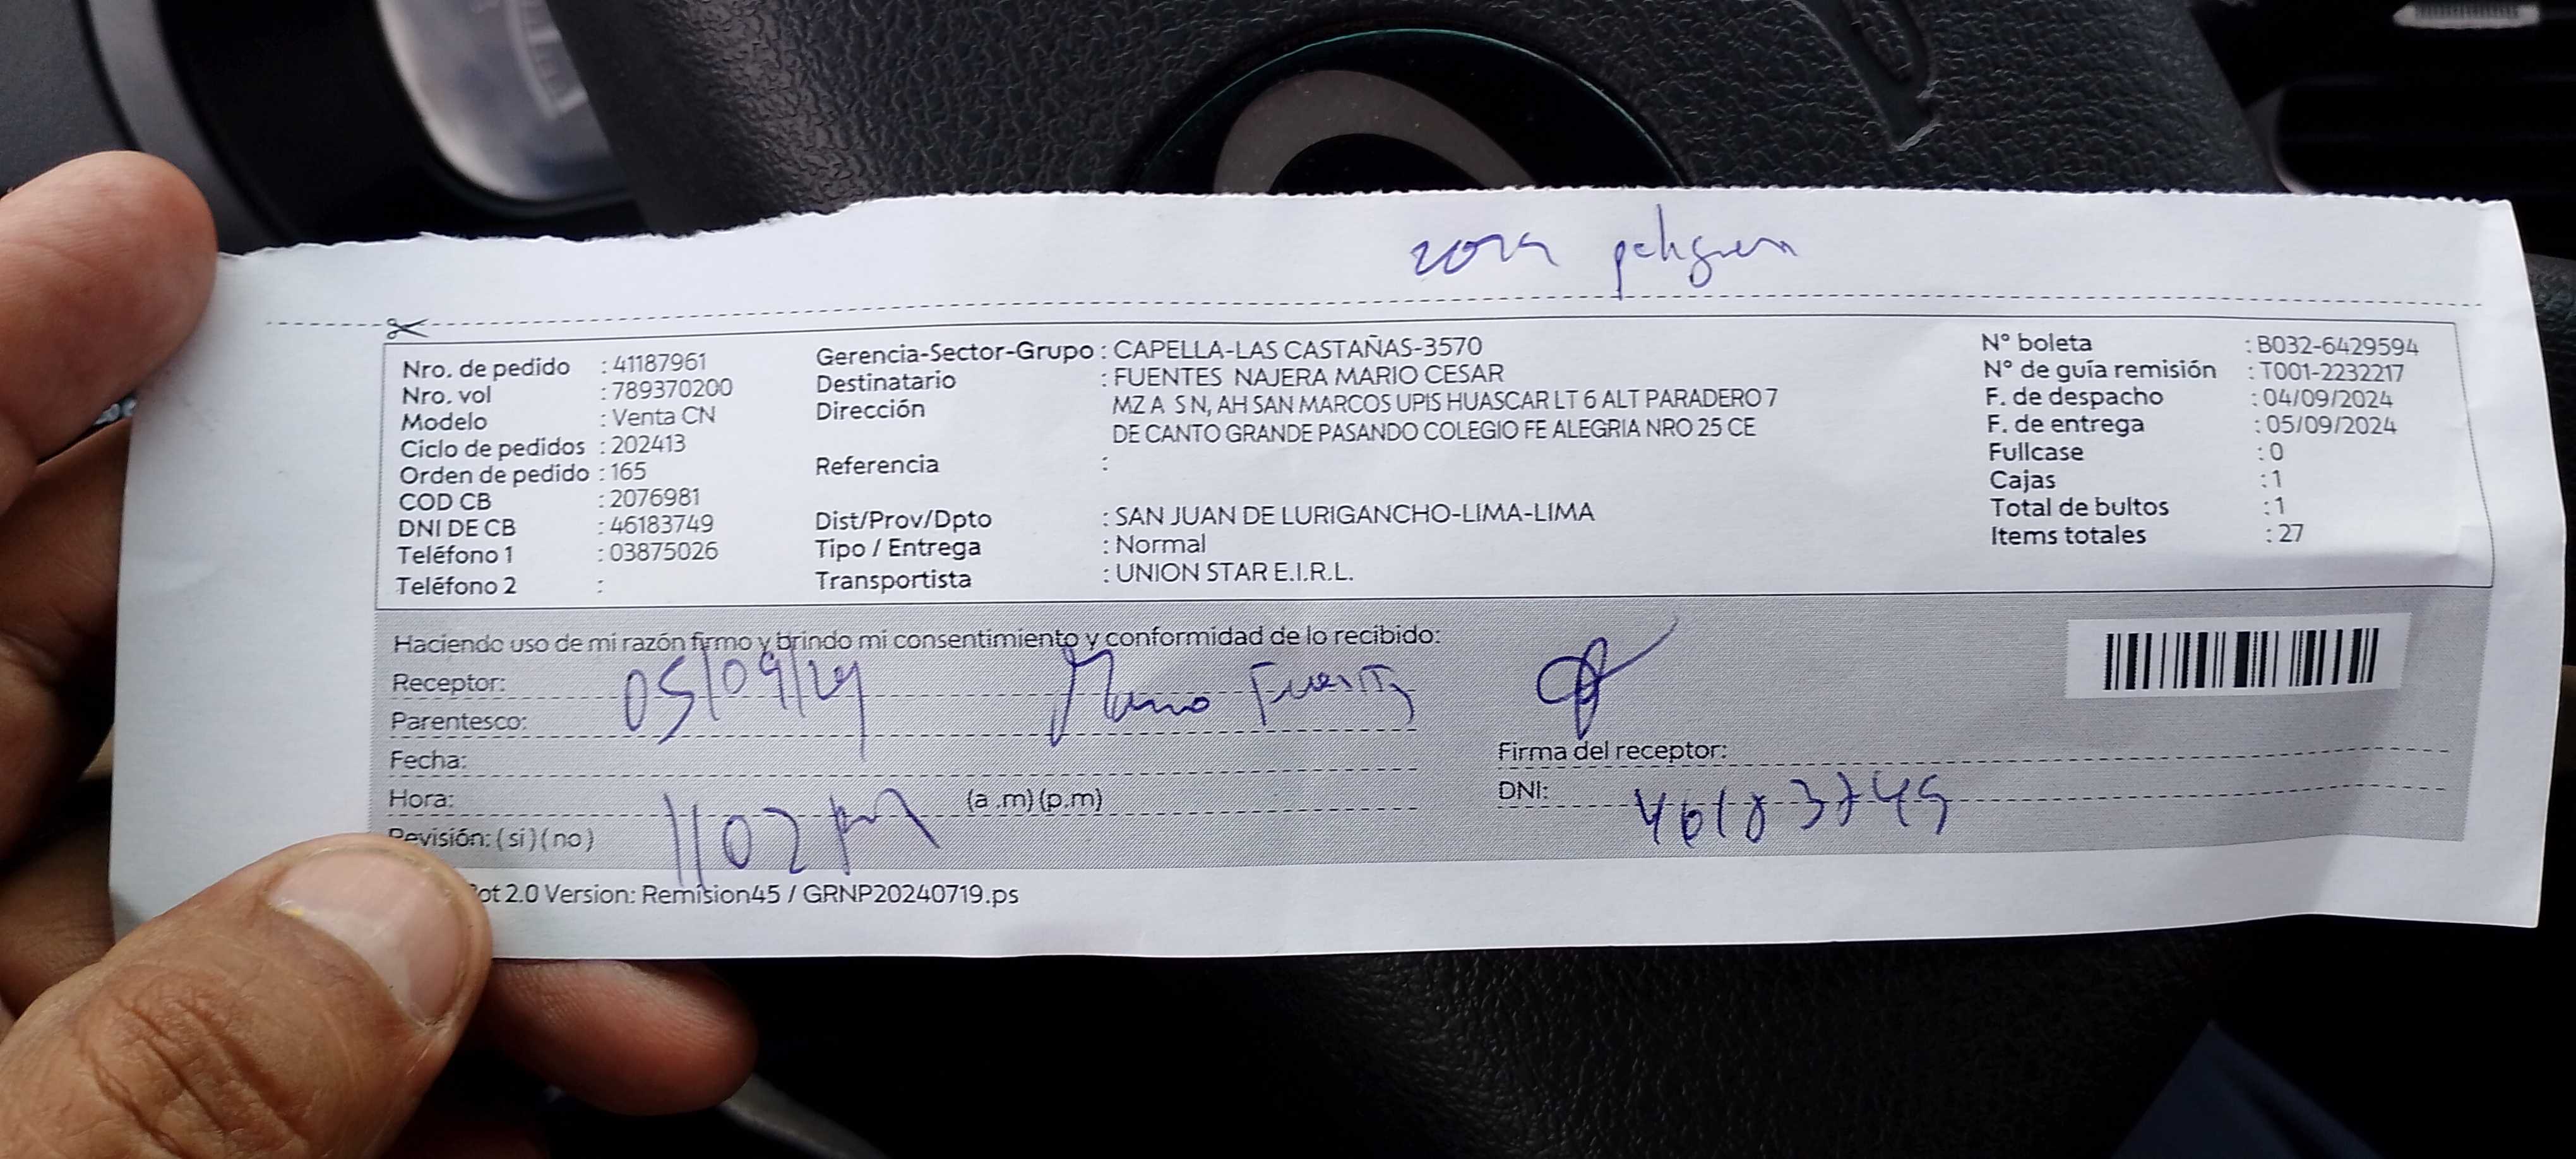 zona peligrosa
Nro. de pedido : 41187961
Nro. vol : 789370200
Modelo : Venta CN
Ciclo de pedidos : 202413
Orden de pedido : 165
COD CB : 2076981
DNI DE CB : 46183749
Teléfono 1 : 03875026
Teléfono 2 :
Gerencia-Sector-Grupo : CAPELLA-LAS CASTAÑAS-3570
Destinatario : FUENTES NAJERA MARIO CESAR
Dirección MZ A S N, AH SAN MARCOS UPIS HUASCAR LT 6 ALT PARADERO 7
DE CANTO GRANDE PASANDO COLEGIO FE ALEGRIA NRO 25 CE
Referencia :
Dist/Prov/Dpto : SAN JUAN DE LURIGANCHO-LIMA-LIMA
Tipo / Entrega : Normal
Transportista : UNION STAR E.I.R.L.
N° boleta : B032-6429594
N° de guía remisión : T001-2232217
F. de despacho : 04/09/2024
F. de entrega : 05/09/2024
Fullcase : 0
Cajas : 1
Total de bultos : 1
Items totales : 27
Haciendo uso de mi razón firmo y brindo mi consentimiento y conformidad de lo recibido:
Receptor:
05/09/24 Mario Fuentes
Parentesco:
Fecha:
Firma del receptor:
Hora: (a .m) (p.m)
DNI: 46183749
Revisión: ( si ) ( no ) 1102 pm
ot 2.0 Version: Remision45 / GRNP20240719.ps